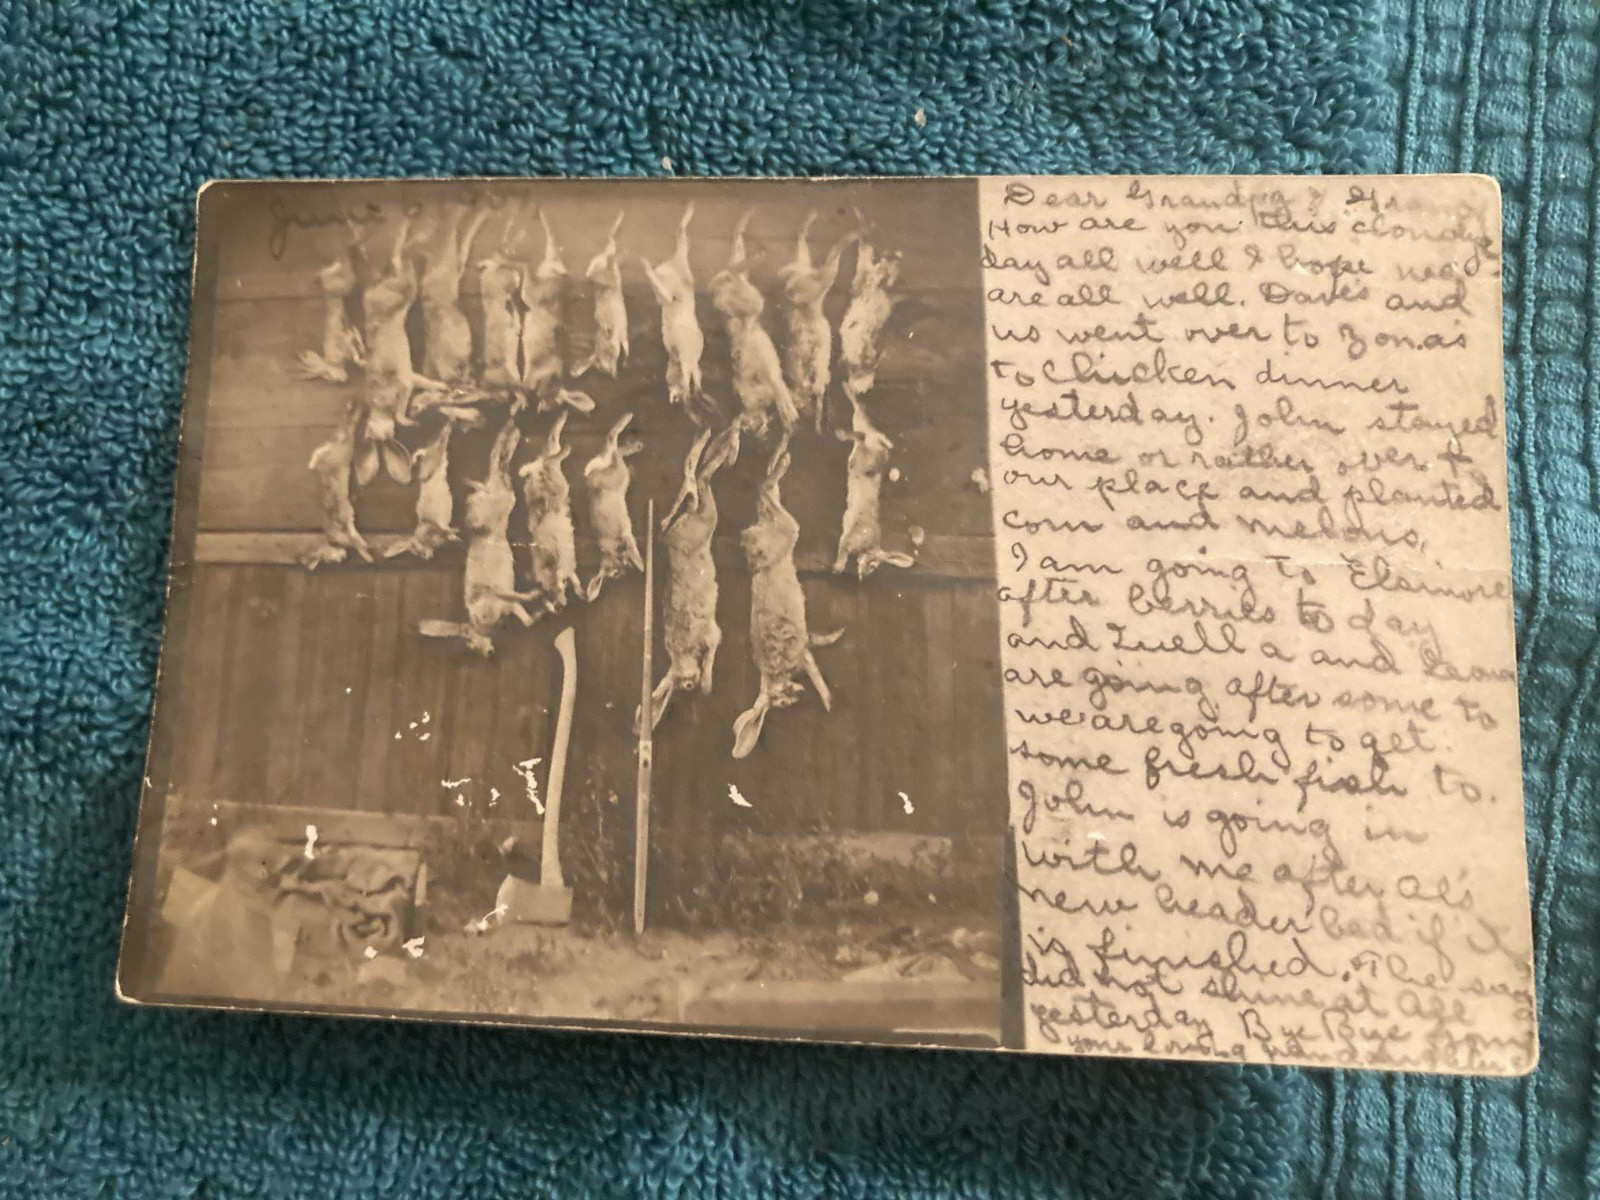 June 6 1907
Dear Grandpa & Grandma
How are you this cloudy
day all well I hope we
are all well. Daves and
us went over to Zonas
to chicken dinner
yesterday. John stayed
home or rather over to
our place and planted
corn and melons,
I am going to Elsinore
after berries to day
and Luella and Leona
are going after some to
we are going to get
some fresh fish to.
John is going in
with me after Al's
new header bed if it
is finished. The sun
did not shine at all
yesterday Bye Bye from
your loving granddaughter